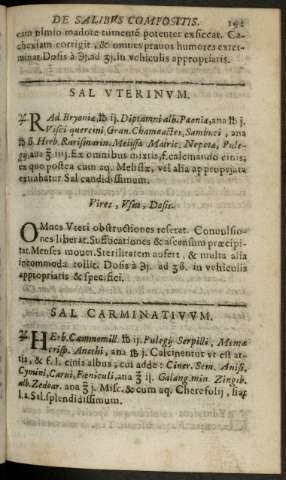 DE SALIBVS COMPOSITIS. 191
eam nimio madore tumentē potenter exsiccat. Ca-
chexiam corrigit, & omnes pravos humores exter-
minat. Dosis à ℈j. ad ʒj. in vehiculis appropriatis.
SAL VTERINVM.
♃ RAd. Bryoniæ, ℔ ij. Diptamni alb. Pæoniæ, ana ℔ j.
Visci quercini, Gran. Chameactes, Sambuci, ana
℔ ß. Herb. Matricariæ. Melissæ Matric. Nepetæ, Pule-
gij, ana ℥ iiij. Ex omnibus mixtis, f. calcinando cinis;
ex quo postea cum aq. Melissæ, vel alia appropriata
extrahatur Sal candidissimum.
Vires, Usus, Dosis.
OMnes Uteri obstructiones reserat. Convulsio-
nes liberat. Suffocationes & ascensum præcipi-
tat. Menses movet. Sterilitatem aufert, & multa alia
incommoda tollit. Dosis à ℈j. ad ʒß. in vehiculis
appropriatis & specificis.
SAL CARMINATIVVM.
♃ HErb. Cammomill. ℔ ij. Pulegij Serpilli, Mentæ
crisp. Anethi, ana ℔ j. Calcinentur ut est ar-
tis, & f. l. cinis albus; cui adde: Ciner. Sem. Anisi,
Cymini, Carui, Fœniculi, ana ℥ ij. Galang. min. Zingib.
alb. Zedoar. ana ℥ j. Misc. & cum aq. Cherefolij, fiat
l. a. Sal splendidissimum.